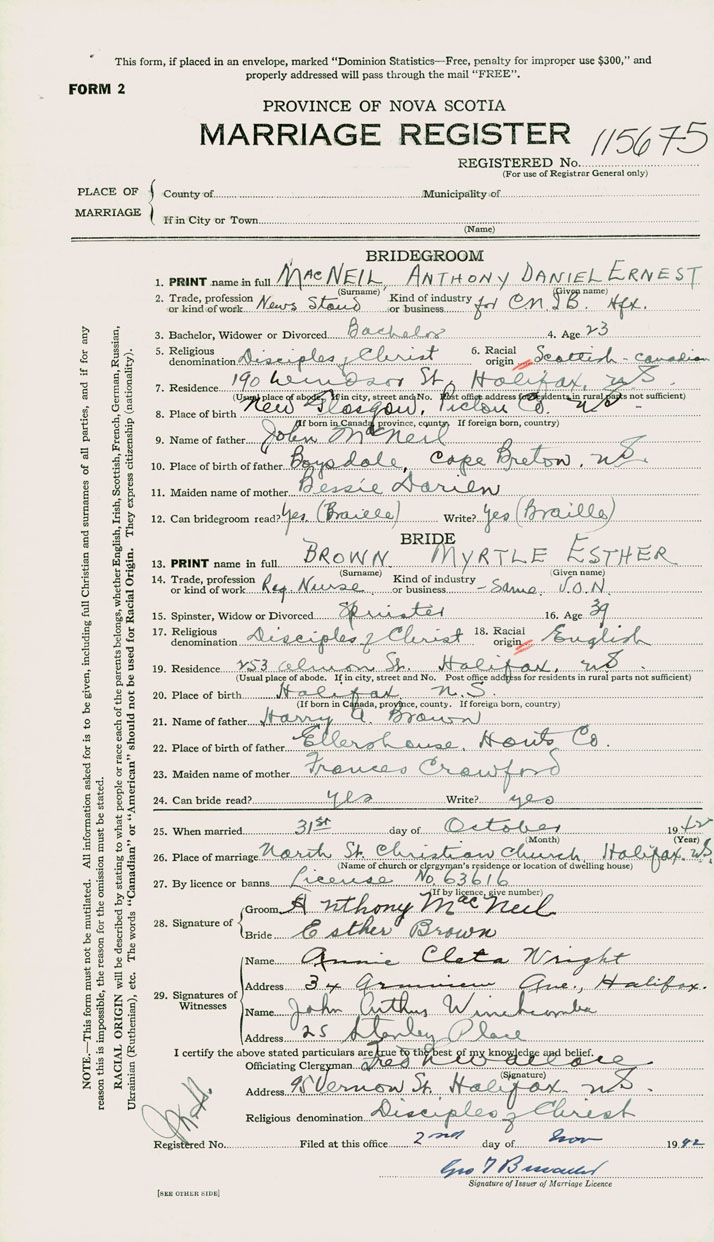 This form, if placed in an envelope, marked "Dominion Statistics—Free, penalty for improper use $300," and
properly addressed will pass through the mail "FREE".
FORM 2
PROVINCE OF NOVA SCOTIA
MARRIAGE REGISTER
REGISTERED No. 115675
(For use of Registrar General only)
PLACE OF MARRIAGE
County of Municipality of
If in City or Town
(Name)
BRIDEGROOM
1. PRINT name in full MacNEIL, ANTHONY DANIEL ERNEST
(Surname) (Given name)
2. Trade, profession or kind of work News Stand Kind of industry or business for C.N.I.B. Hfx.
3. Bachelor, Widower or Divorced Bachelor 4. Age 23
5. Religious denomination Disciples of Christ 6. Racial origin Scottish - Canadian
7. Residence 190 Windsor St, Halifax, N.S.
(Usual place of abode. If in city, street and No. Post office address for residents in rural parts not sufficient)
8. Place of birth New Glasgow, Pictou Co. N.S.
(If born in Canada, province, county. If foreign born, country)
9. Name of father John MacNeil
10. Place of birth of father Boysdale, Cape Breton, N.S.
11. Maiden name of mother Bessie Darien
12. Can bridegroom read? Yes (Braille) Write? Yes (Braille)
BRIDE
13. PRINT name in full BROWN MYRTLE ESTHER
(Surname) (Given name)
14. Trade, profession or kind of work Reg. Nurse Kind of industry or business - Same. V.O.N.
15. Spinster, Widow or Divorced Spinster 16. Age 39
17. Religious denomination Disciples of Christ 18. Racial origin English
19. Residence 253 Almon St. Halifax, N.S.
(Usual place of abode. If in city, street and No. Post office address for residents in rural parts not sufficient)
20. Place of birth Halifax N.S.
(If born in Canada, province, county. If foreign born, country)
21. Name of father Harry A. Brown
22. Place of birth of father Ellershouse, Hants Co.
23. Maiden name of mother Frances Crawford
24. Can bride read? yes Write? yes
25. When married 31st day of October 1942
(Month) (Year)
26. Place of marriage North St. Christian Church, Halifax. N.S.
(Name of church or clergyman's residence or location of dwelling house)
27. By licence or banns License No. 63616
(If by licence, give number)
28. Signature of
Groom Anthony MacNeil
Bride Esther Brown
29. Signatures of Witnesses
Name Annie Cleta Wright
Address 34 Ave., Halifax.
Name John Arthur Winchcombe
Address 25 Stanley Place
I certify the above stated particulars are true to the best of my knowledge and belief.
Officiating Clergyman Fred Wallace
(Signature)
Address 95 Vernon St. Halifax N.S.
Religious denomination Disciples of Christ
Registered No. Filed at this office 2nd day of Nov 1942
Geo T
Signature of Issuer of Marriage Licence
[SEE OTHER SIDE]
NOTE.—This form must not be mutilated. All information asked for is to be given, including full Christian and surnames of all parties, and if for any
reason this is impossible, the reason for the omission must be stated.
RACIAL ORIGIN will be described by stating to what people or race each of the parents belongs, whether English, Irish, Scottish, French, German, Russian,
Ukrainian (Ruthenian), etc. The words "Canadian" or "American" should not be used for Racial Origin. They express citizenship (nationality).